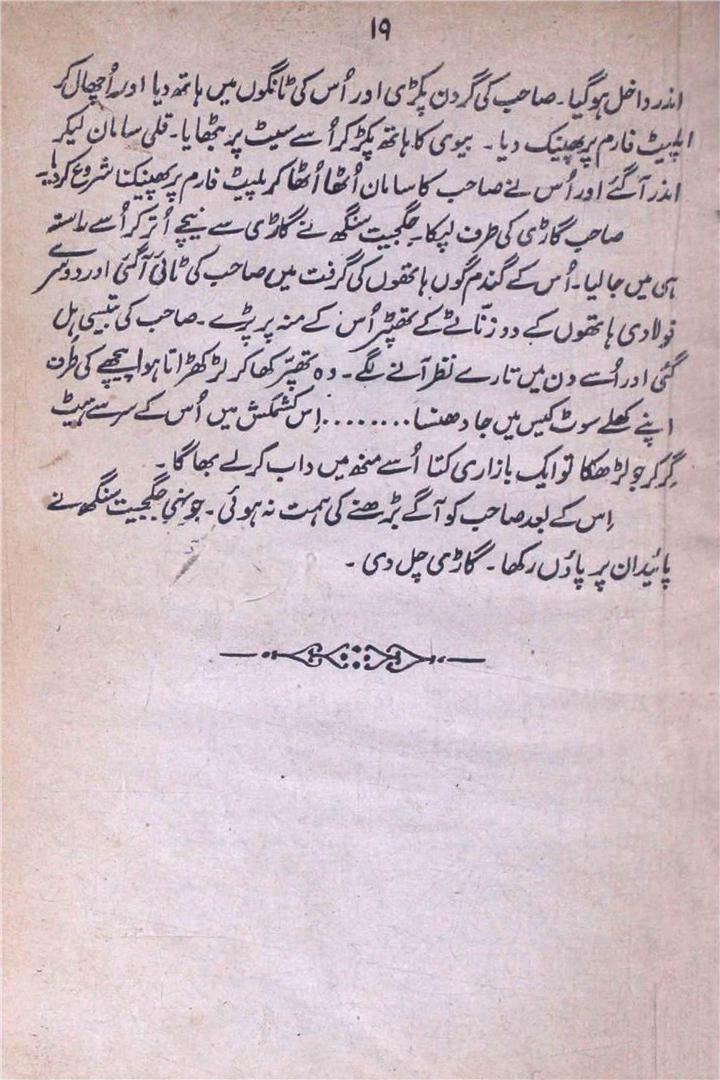 ۱۹
اندر داخل ہوگیا۔ صاحب کی گردن پکڑی اور اُس کی ٹانگوں میں ہاتھ دیا اور اُچھال کر
پلیٹ فارم پر پھینک دیا۔ بیوی کا ہاتھ پکڑ کر اُسے سیٹ پر بٹھایا۔ قلی سامان لیکر
اندر آگئے اور اُس نے صاحب کا سامان اُٹھا اُٹھا کر پلیٹ فارم پر پھینکنا شروع کردیا۔
صاحب گاڑی کی طرف لپکا۔ جگجیت سنگھ نے گاڑی سے نیچے اُتر کر اُسے راستہ
ہی میں جا لیا۔ اُس کے گندم گوں ہاتھوں کی گرفت میں صاحب کی ٹائی آگئی اور دوسرے
فولادی ہاتھوں کے دو زنّاٹے کے تھپڑ اُس کے منہ پر پڑے۔ صاحب کی بتیسی ہل
گئی اور اُسے دن میں تارے نظر آنے لگے۔ وہ تھپڑ کھا کر لڑکھڑاتا ہوا پیچھے کی طرف
اپنے کھلے سوٹ کیس میں جا دھنسا ........ اِس کشمکش میں اُس کے سر سے ہیٹ
گِر کر جو لڑھکا تو ایک بازاری کتا اُسے منھ میں داب کر لے بھاگا۔
اِس کے بعد صاحب کو آگے بڑھنے کی ہمت نہ ہوئی۔ جونہی جگجیت سنگھ نے
پائیدان پر پاؤں رکھا۔ گاڑی چل دی۔